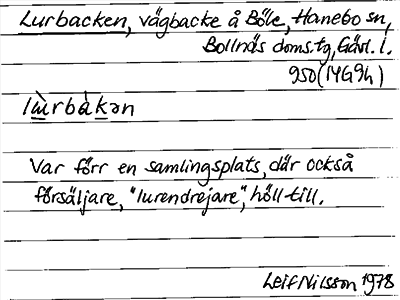 Lurbacken, vägbacke å Böle, Hanebo sn,
Bollnäs doms.tg, Gävl. l.
950 (14G9h)
lu̇̀rbàkən
Var förr en samlingsplats, där också
försäljare, "lurendrejare", höll till.
Leif Nilsson 1978